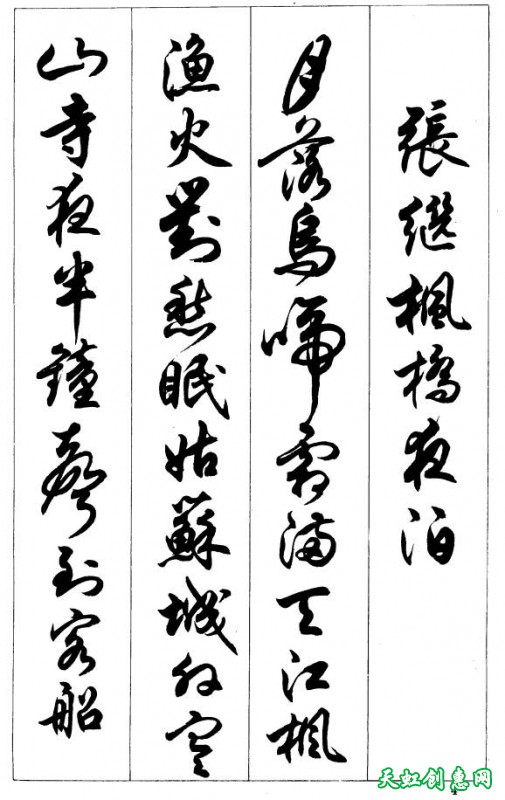 張継楓橋夜泊
月落烏啼霜滿天江楓
漁火對愁眠姑蘇城外寒
山寺夜半鐘聲到客船
天虹创意网